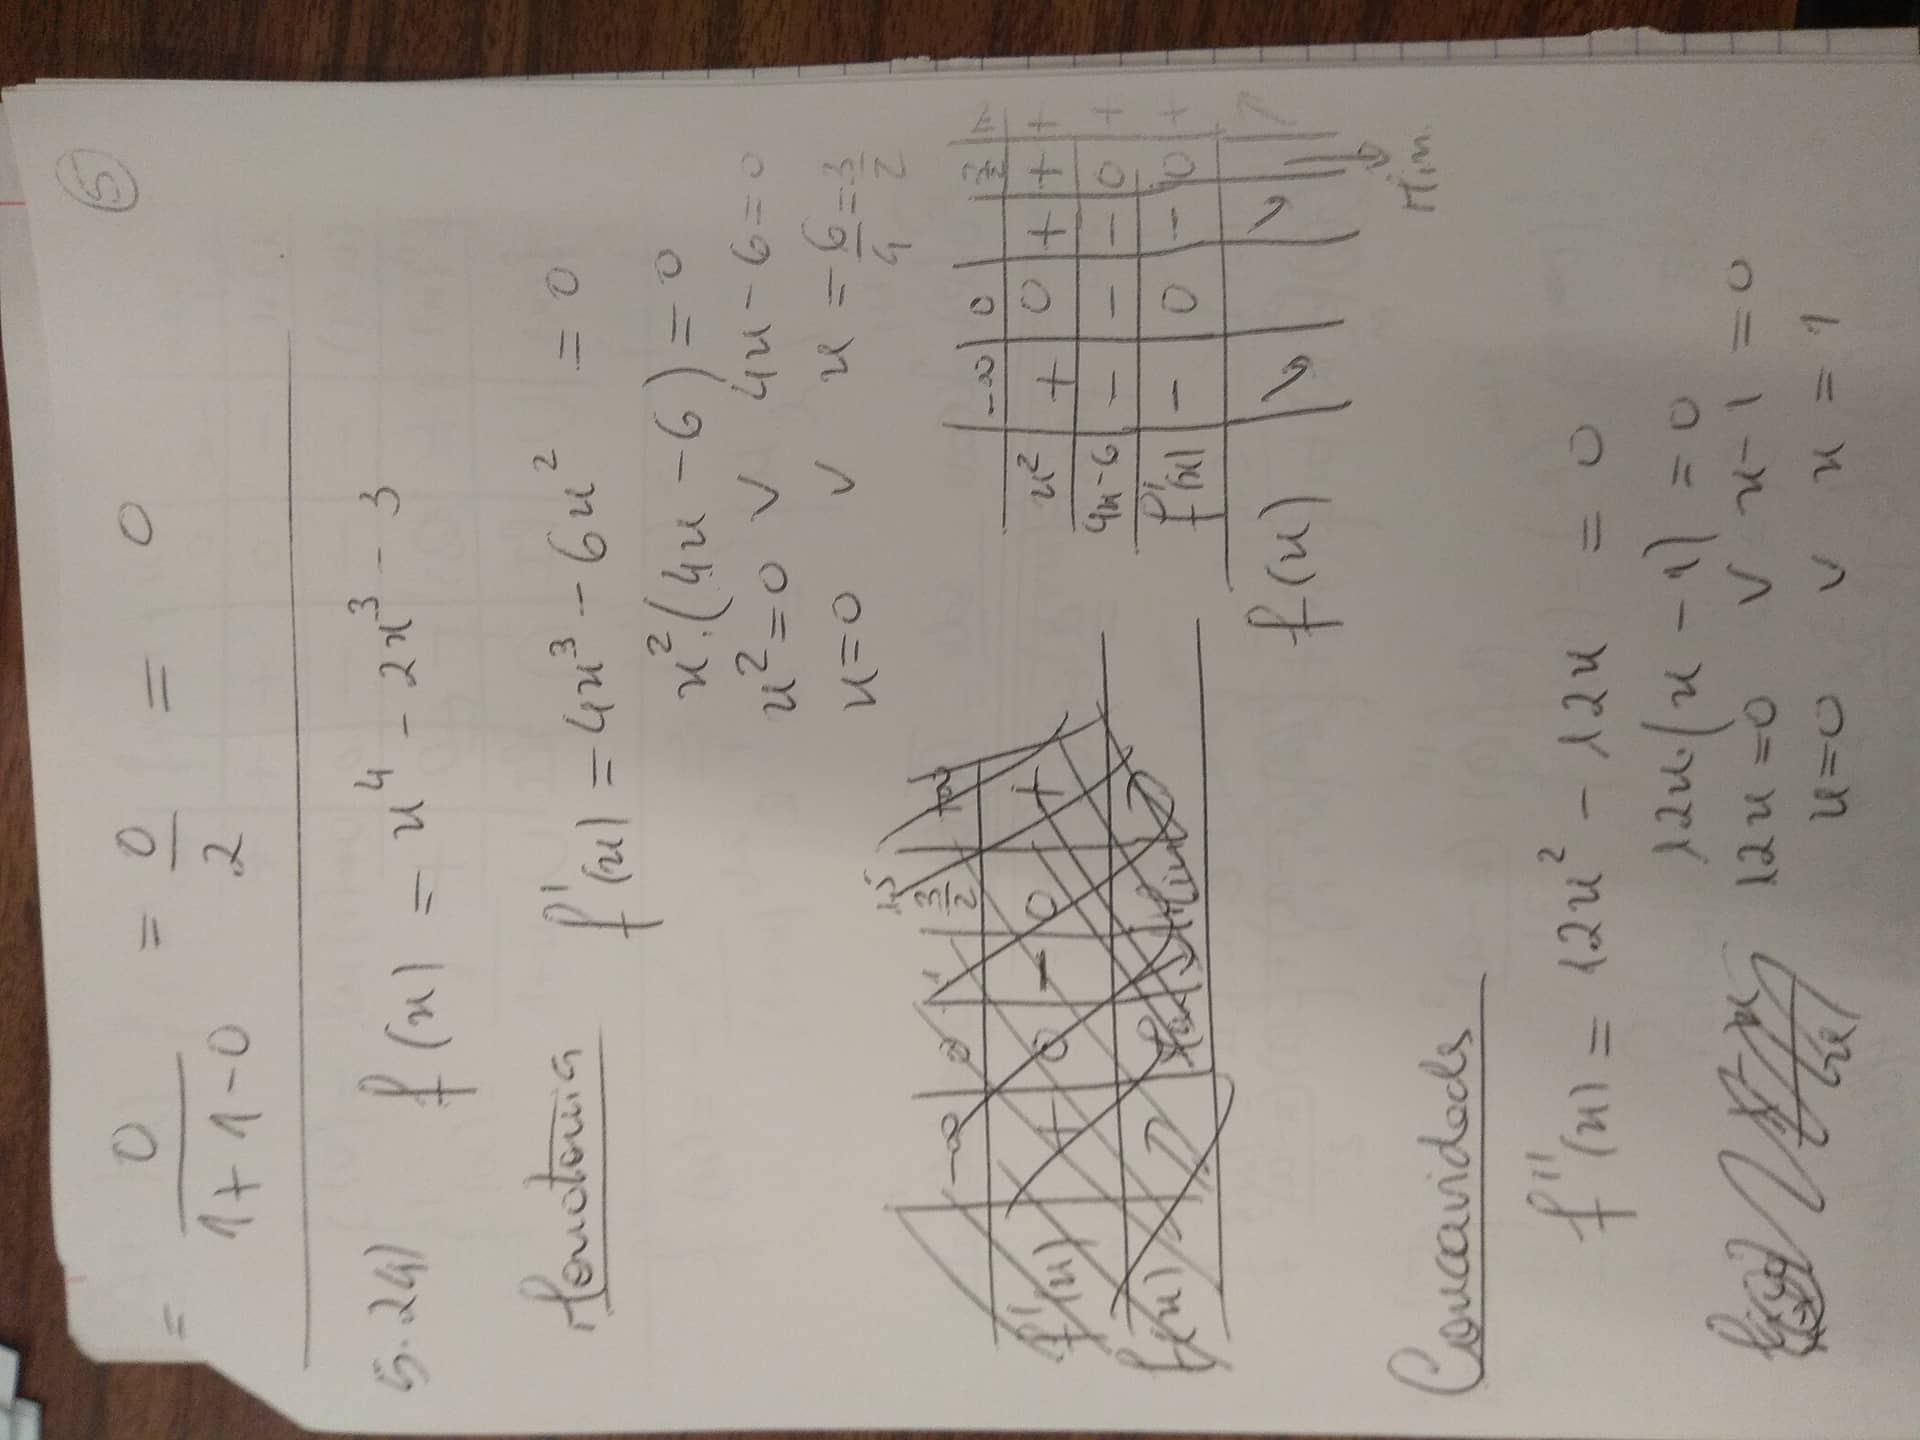 5
= 0/(1+1-0) = 0/2 = 0
5.24) f(x) = x⁴ - 2x³ - 3
Monotonia f'(x) = 4x³ - 6x² = 0
x².(4x - 6) = 0
x² = 0 ∨ 4x - 6 = 0
x = 0 ∨ x = 6/4 = 3/2
-∞ 0 3/2 +∞
f'(x) + 0 - 0 +
f(x) ↗ Max ↘ Min ↗
-∞ 0 3/2
x² + 0 + + +
4x-6 - - - 0 +
f'(x) - 0 - 0 +
f(x) ↘ ↘ ↗
Min.
Concavidade
f''(x) = 12x² - 12x = 0
12x.(x - 1) = 0
12x = 0 ∨ x - 1 = 0
x = 0 ∨ x = 1